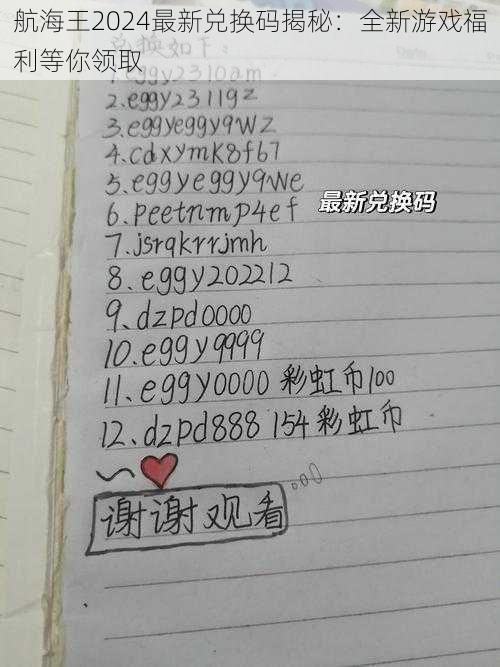 航海王2024最新兑换码揭秘：全新游戏福
利等你领取
兑换如下：
1.eggy2310am
2.eggy23119z
3.eggyeggy9wz
4.cdxymk8f67
5.eggyeggy9we
6.peetnmp4ef
最新兑换码
7.jsrqkrrjmh
8.eggy202212
9、dzpd0000
10.eggy9999
11、eggy0000 彩虹币100
12、dzpd888 154彩虹币
谢谢观看